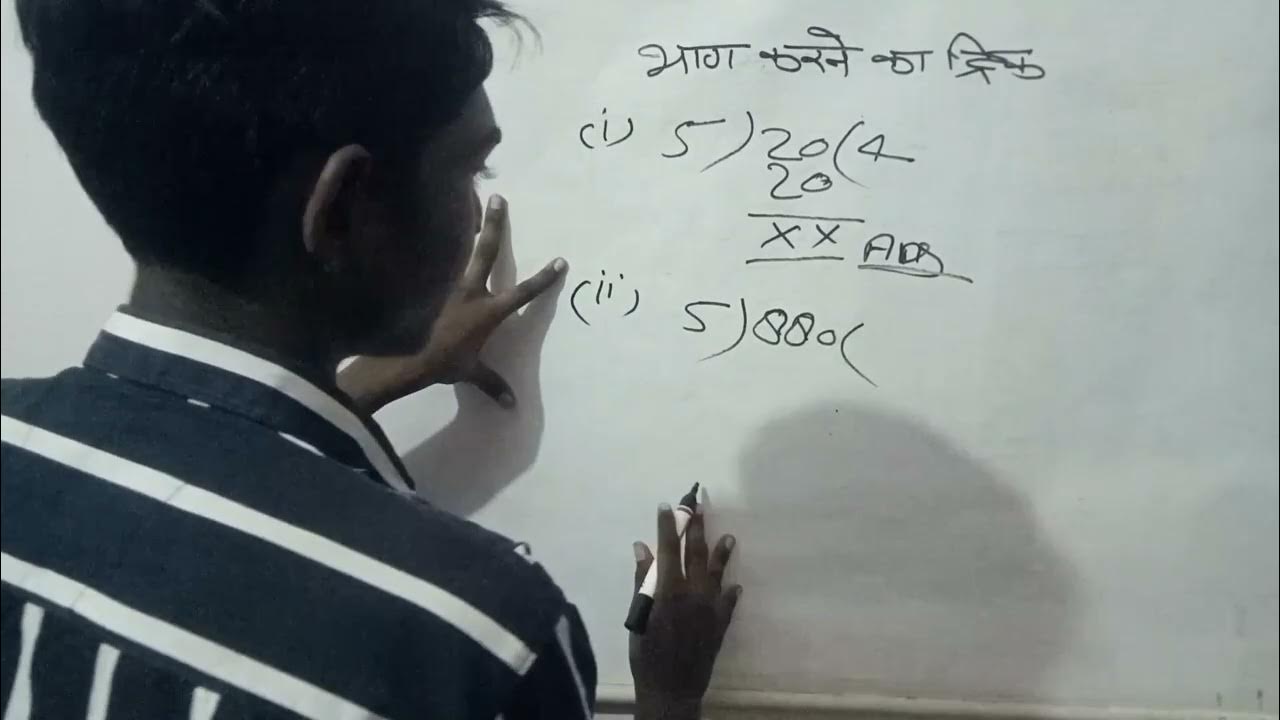 भाग करने का ट्रिक
(i) 5)20(4
20
XX Ans
(ii) 5)880(